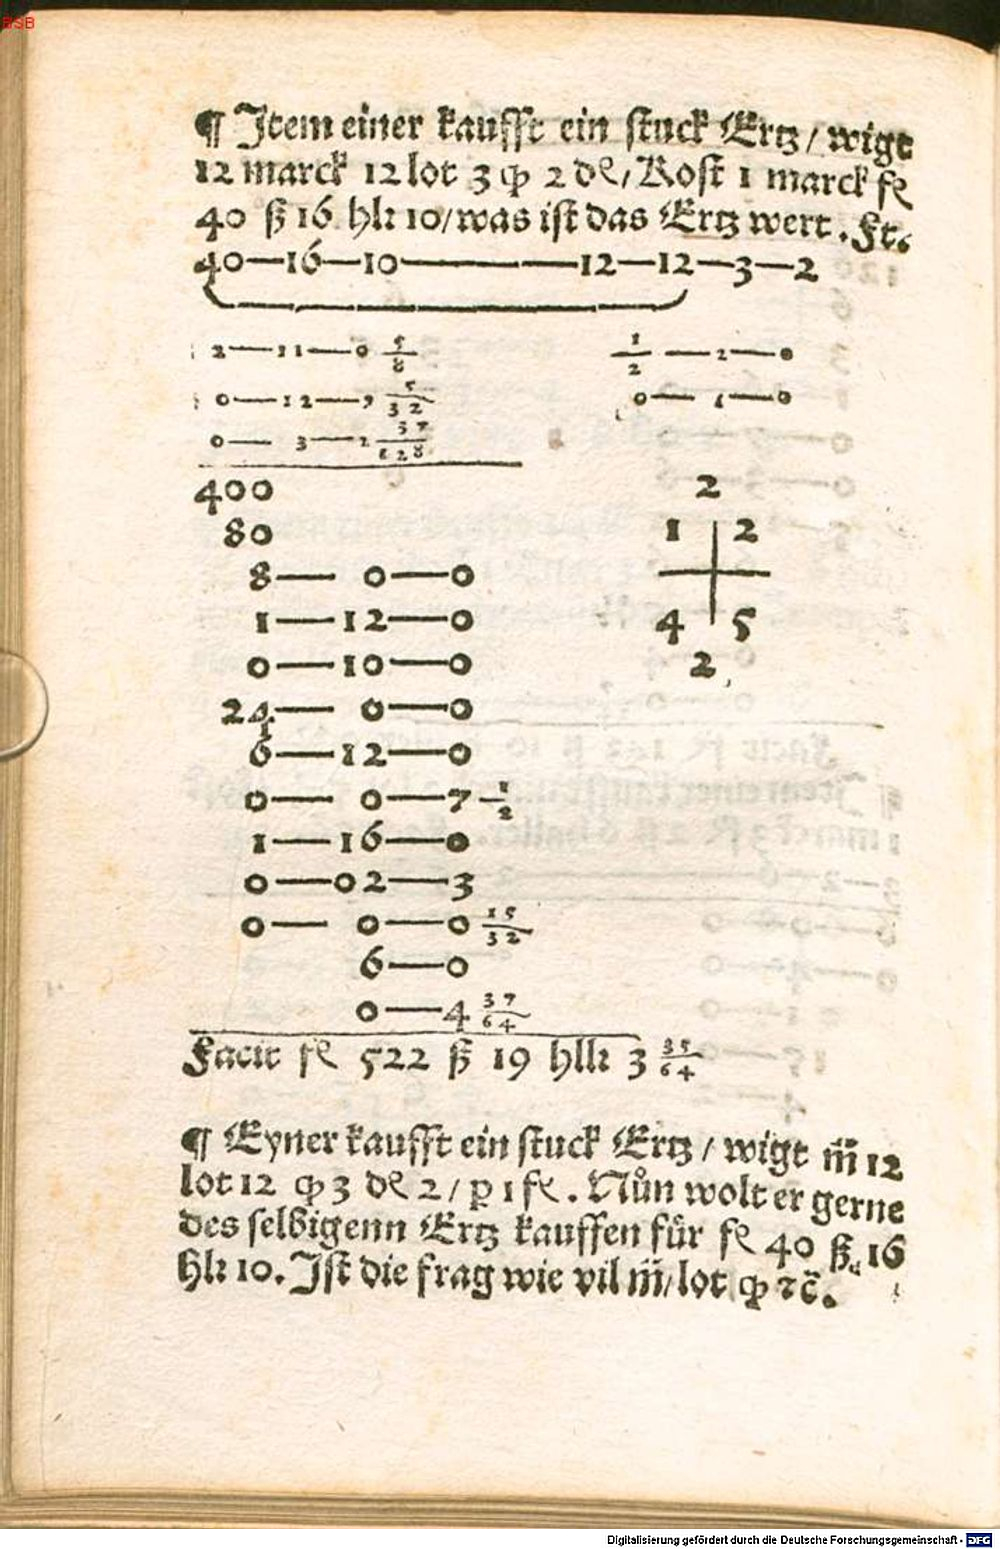 BSB
¶ Item einer kaufft ein stuck Ertz / wigt
12 marck 12 lot 3 qp 2 de / Kost 1 marck fl
40 ß 16 hlr 10 / was ist das Ertz wert . Ft.
40—16—10————12—12—3—2
2—11—0 5/8 1/2—2—0
0—12—9 5/32 0—1—0
0—3—2 37/128
400 2
80 1 2
8—0—0
1—12—0 4 5
0—10—0 2
24—0—0
6—12—0
0—0—7—1/2
1—16—0
0—02—3
0—0—0 15/32
6—0
0—4 37/64
Facit fl 522 ß 19 hllr 3 35/64
¶ Eyner kaufft ein stuck Ertz / wigt m̃ 12
lot 12 qp 3 de 2 / p 1 fl . Nůn wolt er gerne
des selbigenn Ertz kauffen fůr fl 40 ß 16
hlr 10. Ist die frag wie vil m̃ / lot qp ⁊c̃.
Digitalisierung gefördert durch die Deutsche Forschungsgemeinschaft - DFG